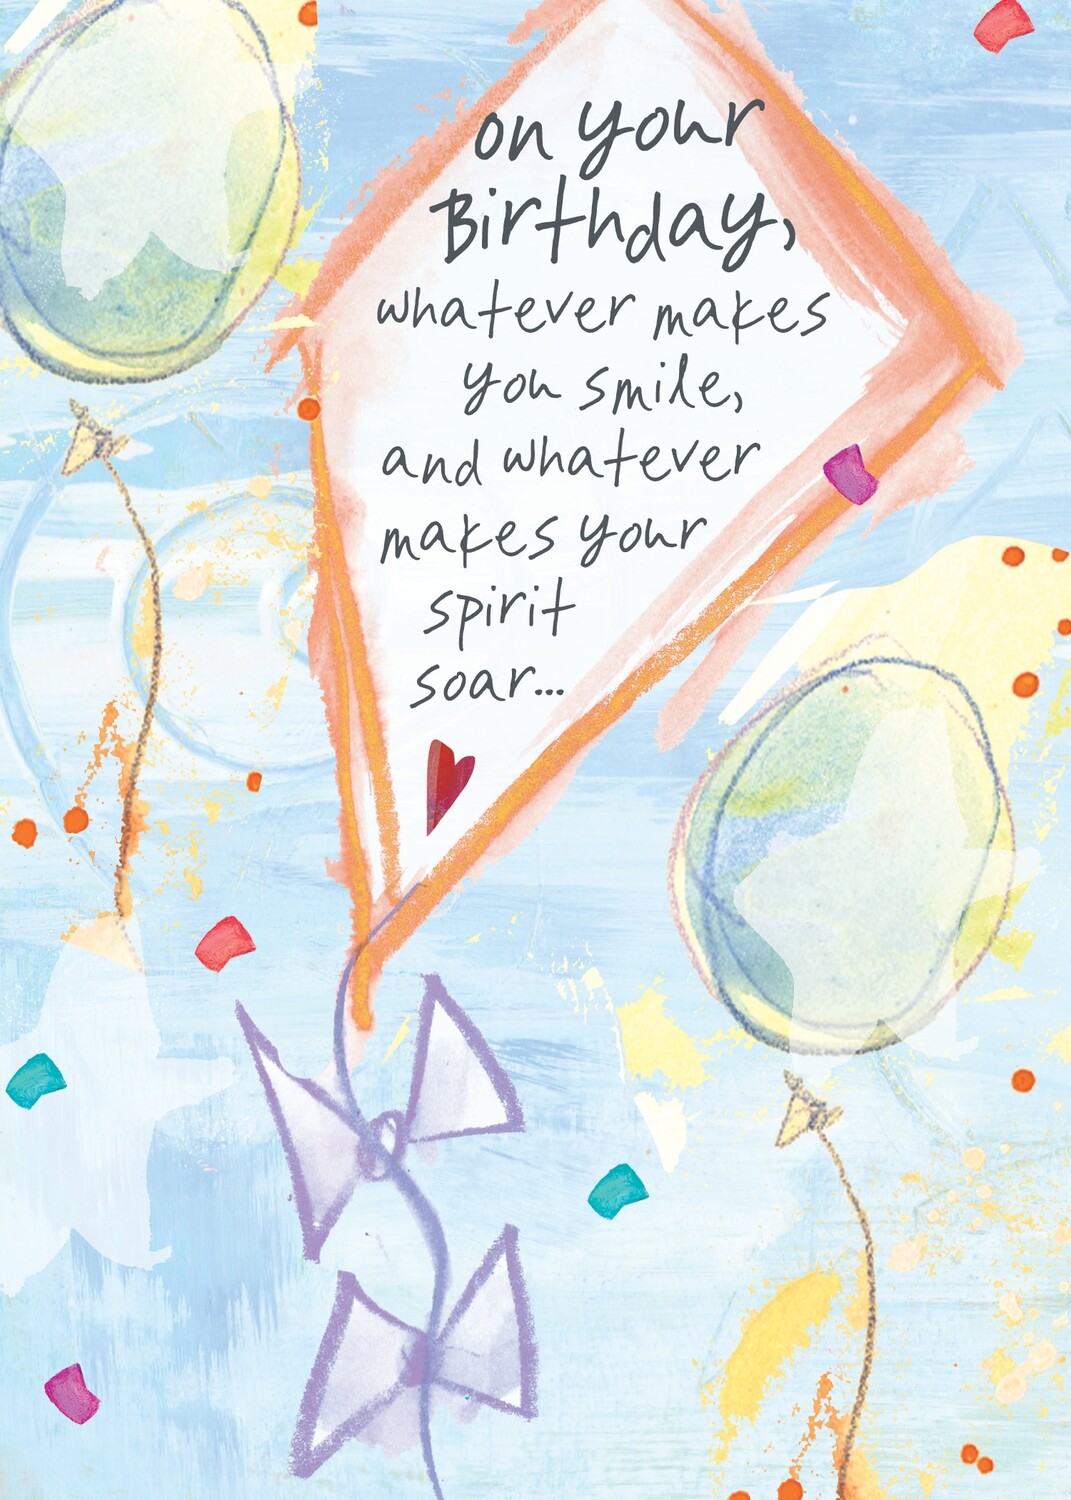 on your
Birthday,
whatever makes
you smile,
and whatever
makes your
spirit
soar...